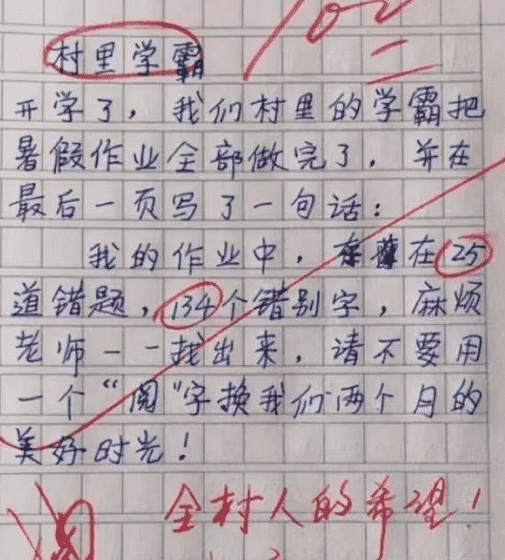 100
村里学霸
开学了，我们村里的学霸把
暑假作业全部做完了，并在
最后一页写了一句话：
我的作业中，存在25
道错题，134个错别字，麻烦
老师一一找出来，请不要用
一个“阅”字换我们两个月的
美好时光！
全村人的希望！